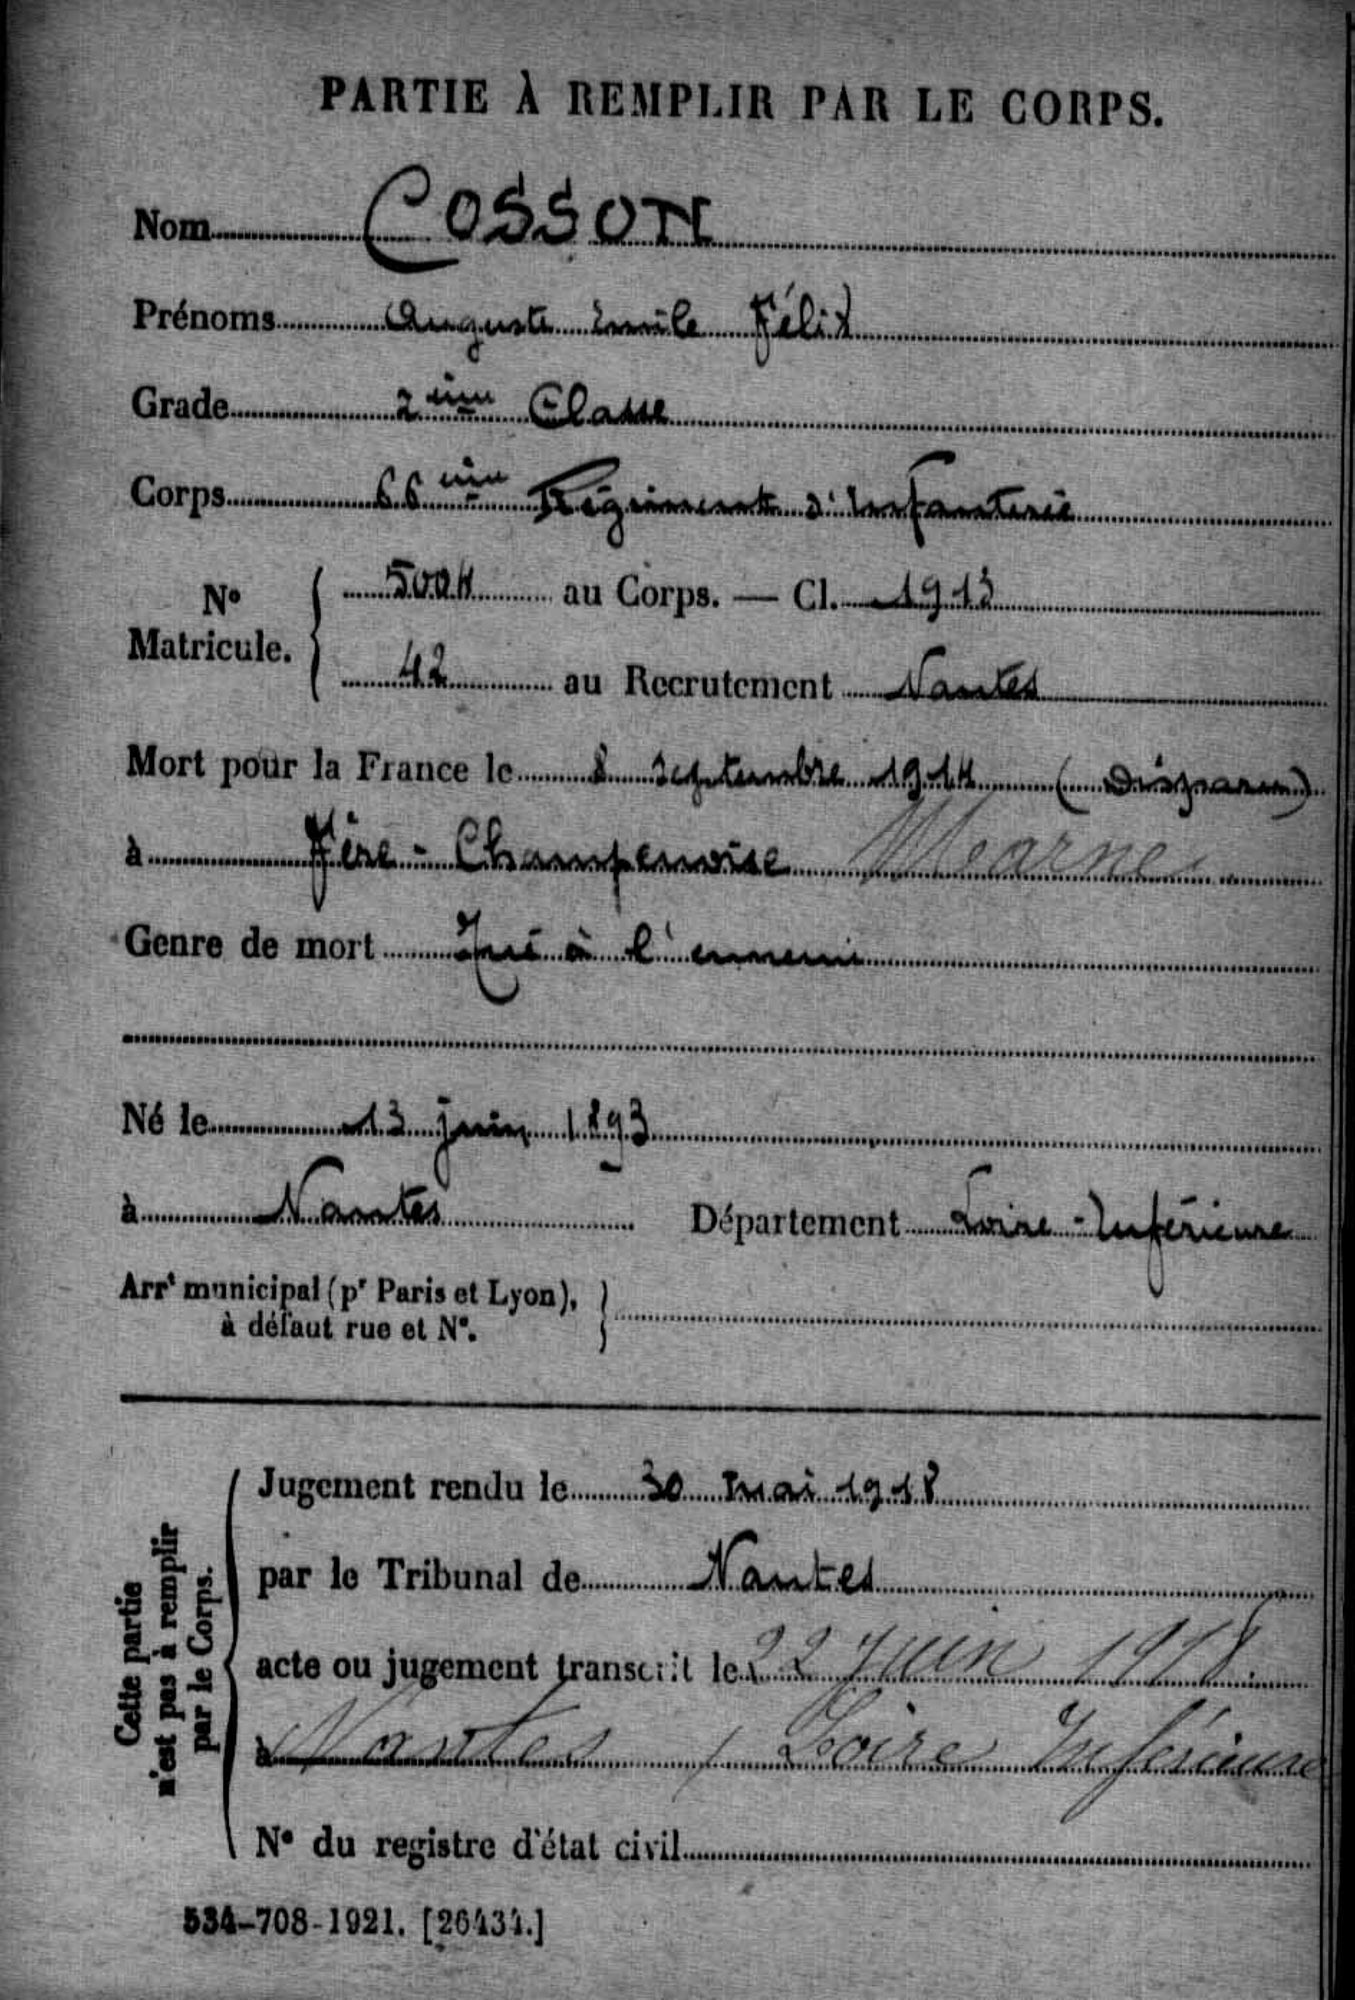 PARTIE À REMPLIR PAR LE CORPS.
Nom COSSON
Prénoms Auguste Emile Félix
Grade 2ème Classe
Corps 66ème Régiment d'Infanterie
No Matricule. 5004 au Corps. — Cl. 1913
42 au Recrutement Nantes
Mort pour la France le 8 septembre 1914 (Disparu)
à Fère-Champenoise Marne
Genre de mort Tué à l'ennemi
Né le 13 juin 1893
à Nantes Département Loire-Inférieure
Arrt municipal (pr Paris et Lyon),
à défaut rue et No.
Cette partie
n'est pas à remplir
par le Corps.
Jugement rendu le 30 mai 1918
par le Tribunal de Nantes
acte ou jugement transcrit le 22 Juin 1918.
à Nantes / Loire Inférieure
No du registre d'état civil
534-708-1921. [26434.]